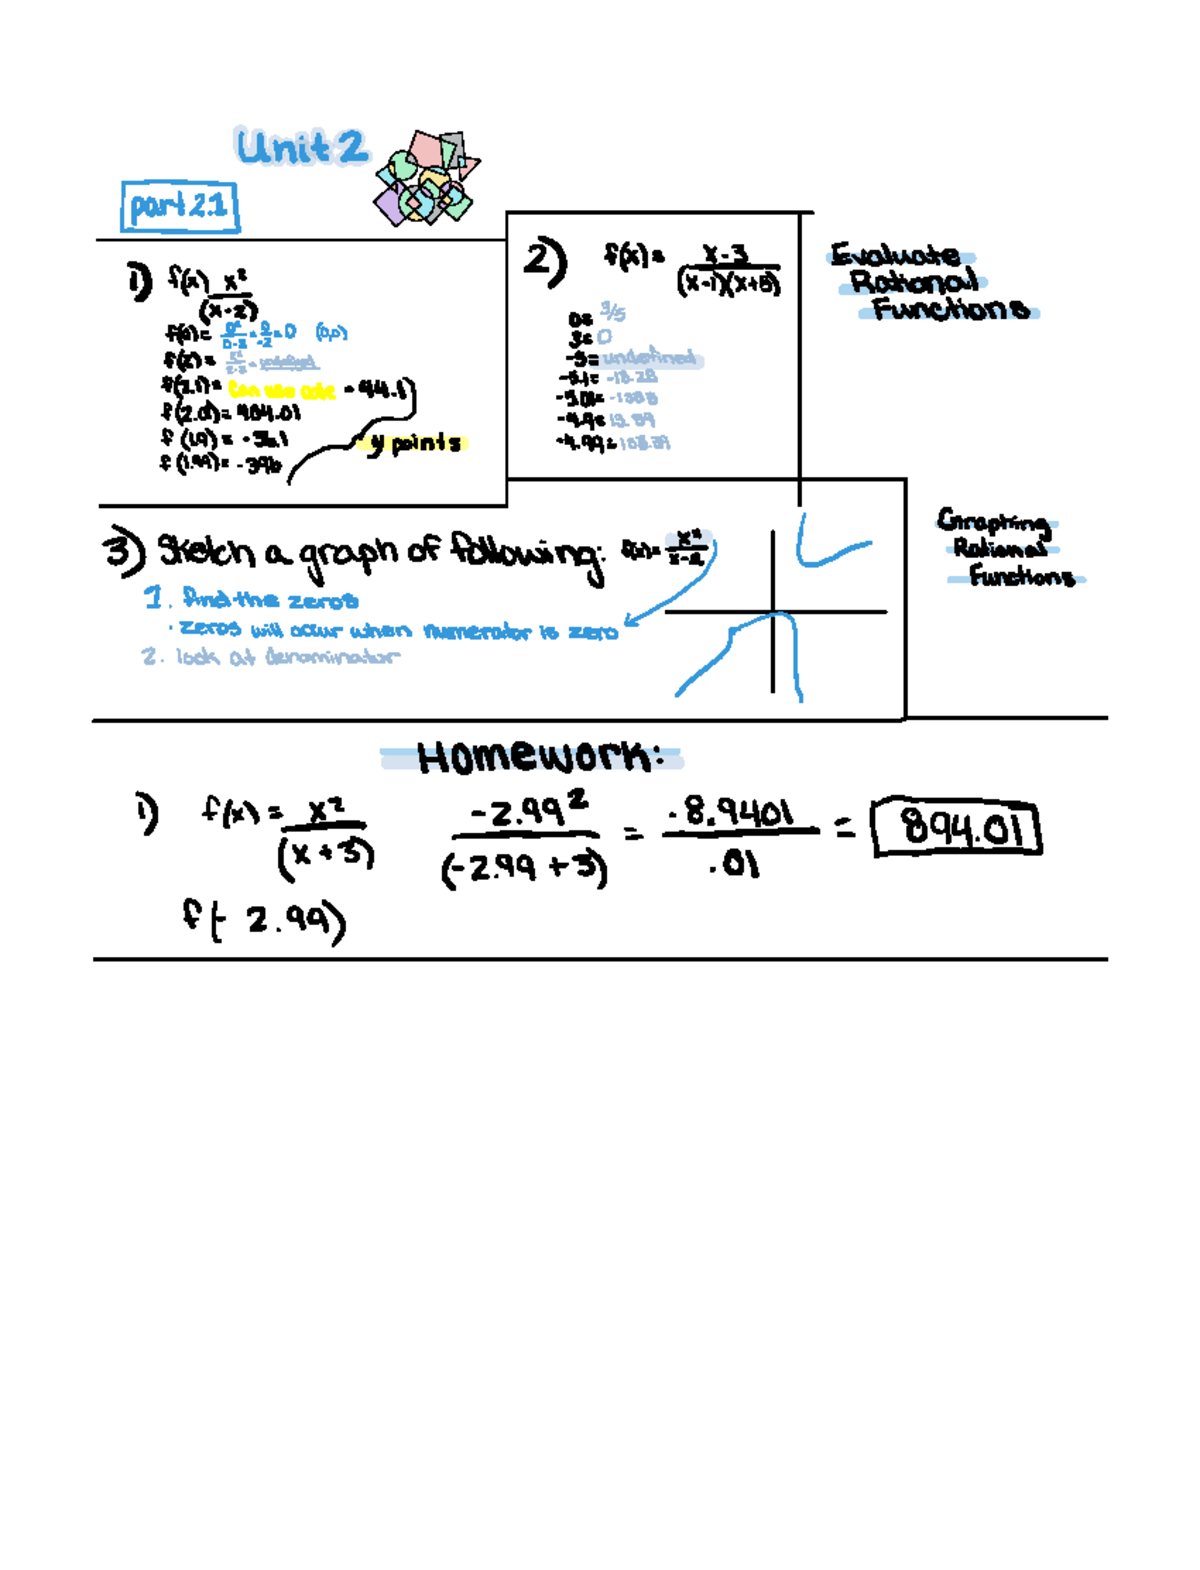 Unit 2
part 2.1
1) f(x) x²
(x-2)
f(0) = 0²/0-2 = 0/-2 = 0 (0,0)
f(2) = 2²/2-2 = undefined
f(2.1) = can use calc - 44.1
f(2.01) = 404.01
f(1.9) = -36.1
f(1.99) = -396
y points
2) f(x) = x-3
(x-1)(x+5)
0= 3/5
3= 0
-5= undefined
-5.1= -13.28
-5.01=
-4.9=
-4.99=
Evaluate
Rational
Functions
3) Sketch a graph of following: f(x) = x²/x-2
1. find the zeros
· zeros will occur when numerator is zero
2. look at denominator
Graphing
Rational
Functions
Homework:
1) f(x) = x²/(x+3) -2.99²/(-2.99+3) = -8.9401/.01 = 894.01
f(-2.99)